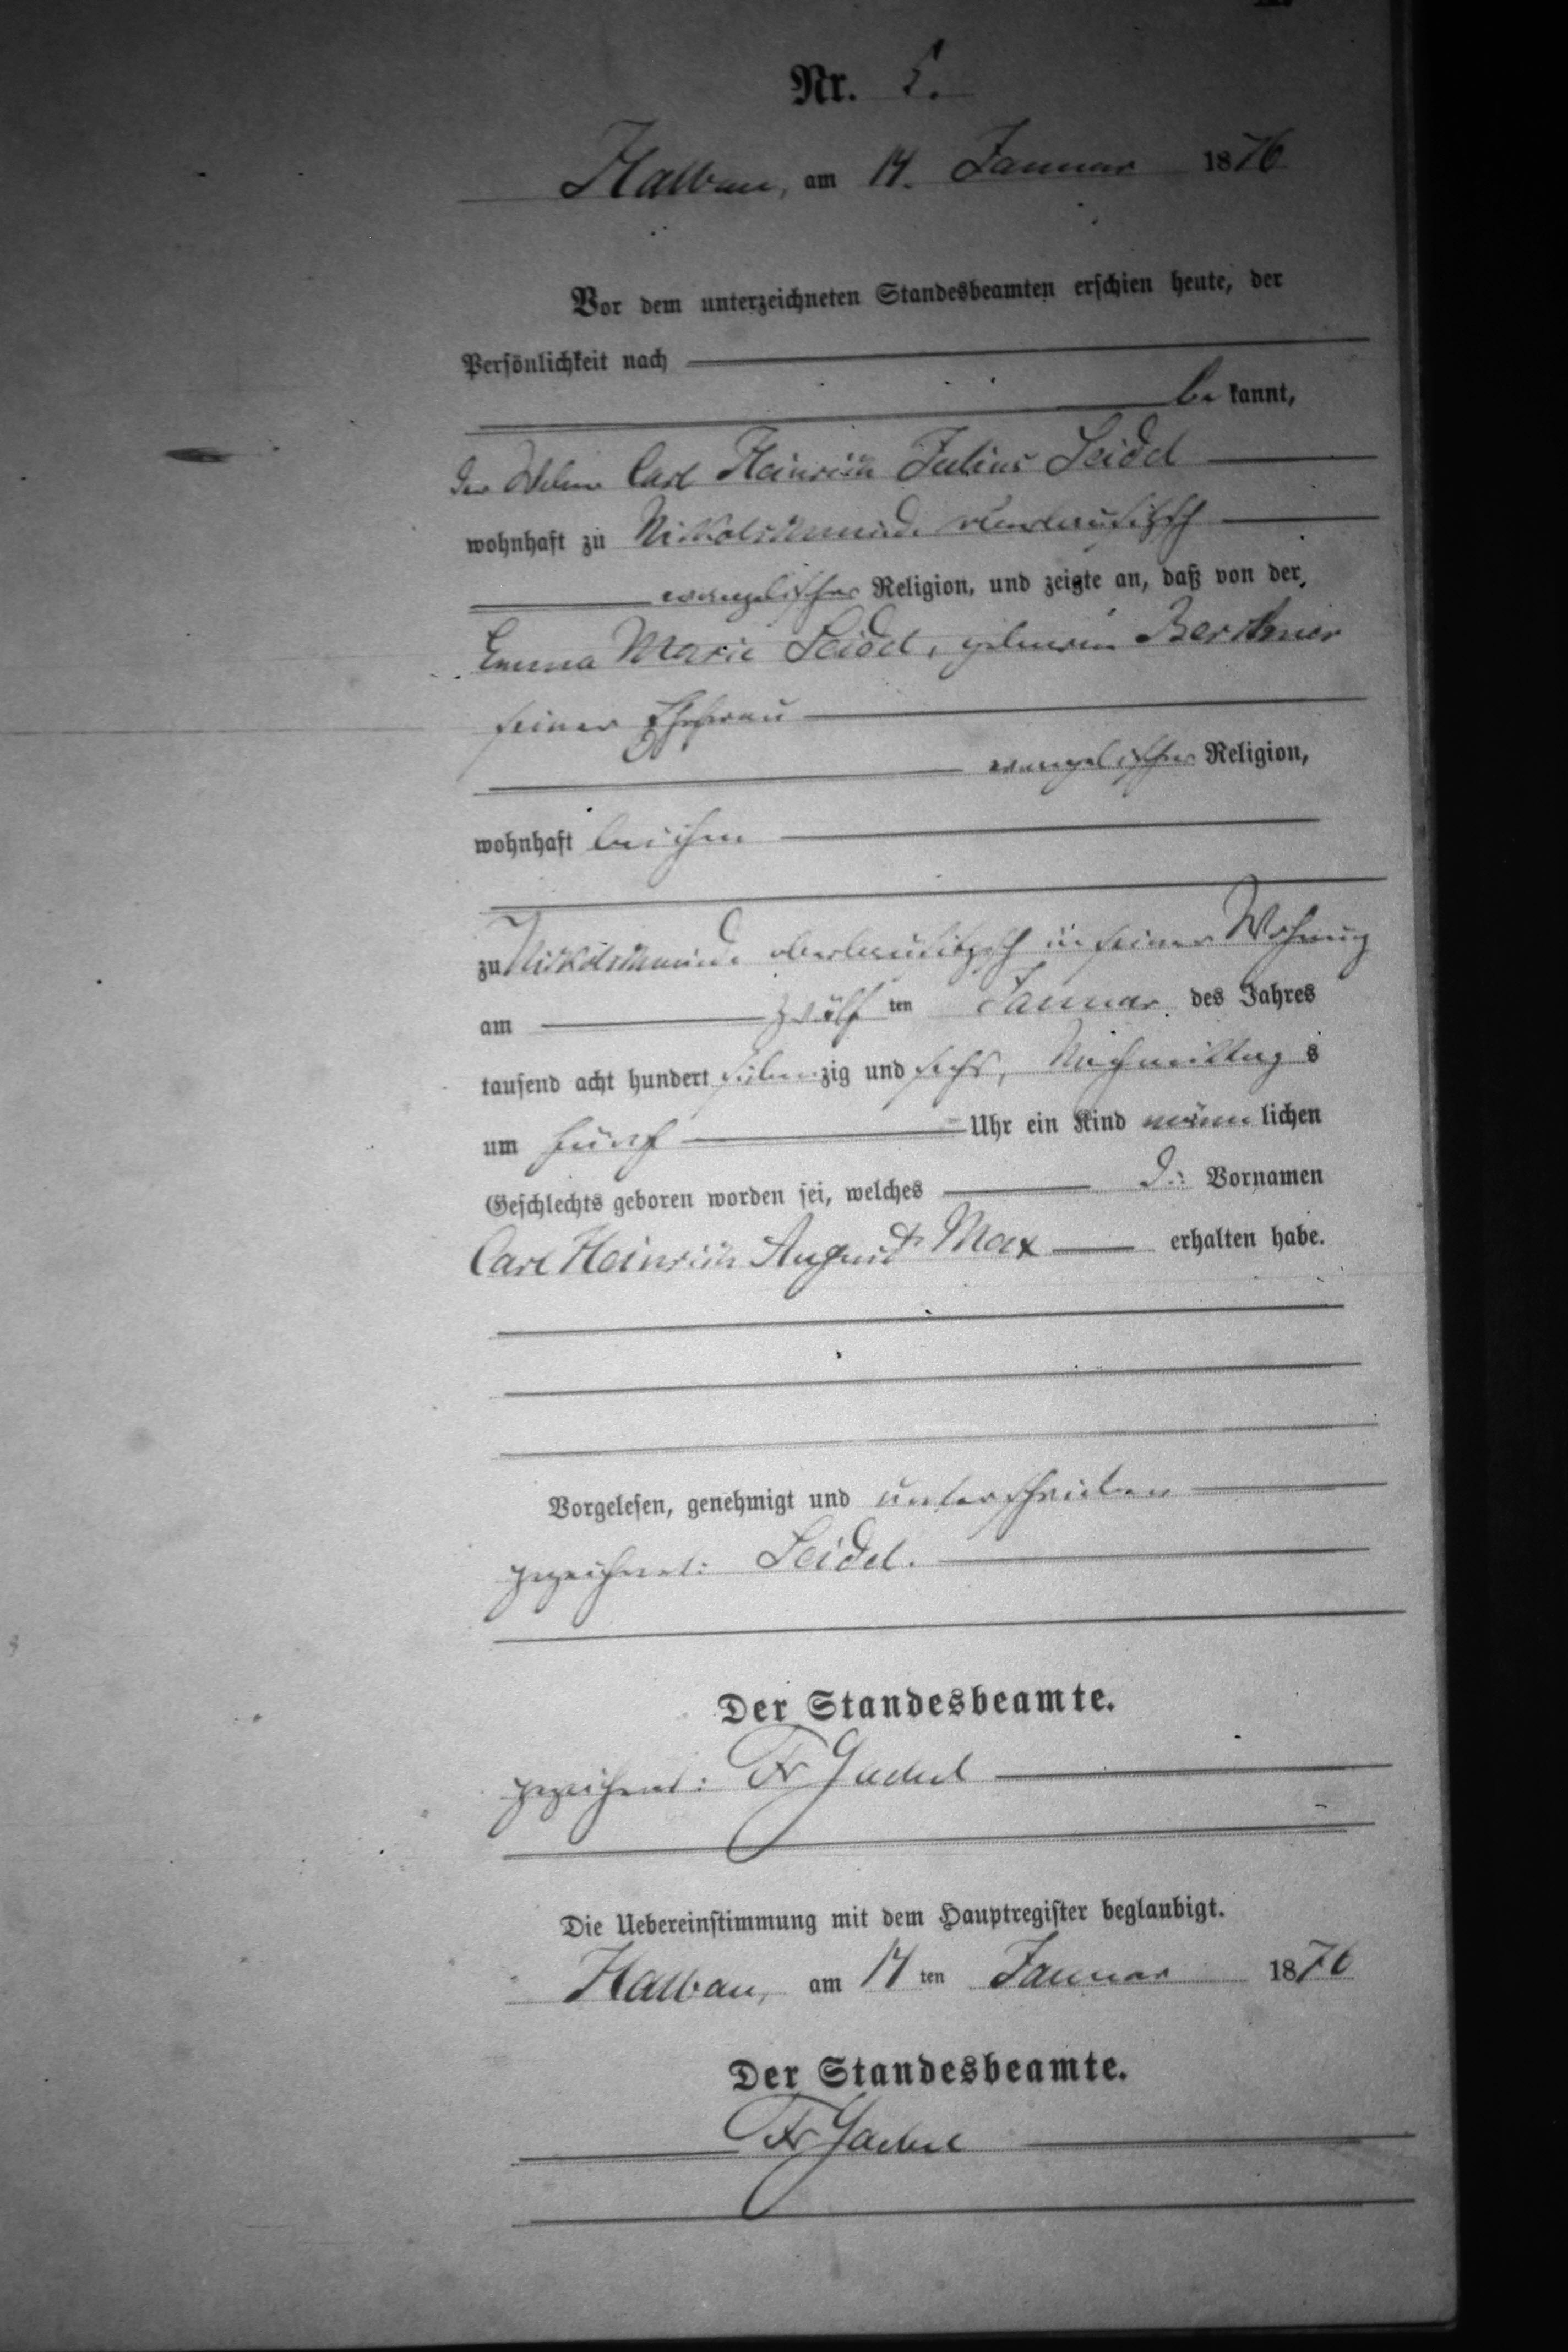 Nr. 5.
Halbau, am 14. Januar 1876
Vor dem unterzeichneten Standesbeamten erschien heute, der
Persönlichkeit nach
be kannt,
der Carl Heinrich Julius Seidel
wohnhaft zu Nikolschmiede oberlausitzsch
evangelischer Religion, und zeigte an, daß von der
Emma Marie Seidel, geborenen
seiner Ehefrau
evangelischer Religion,
wohnhaft bei ihm
zu Nikolschmiede oberlausitzsch in seiner Wohnung
am zwölf ten Januar des Jahres
tausend acht hundert siebenzig und sechs, Nachmittag s
um fünf Uhr ein Kind männ lichen
Geschlechts geboren worden sei, welches die Vornamen
Carl Heinrich August Max erhalten habe.
Vorgelesen, genehmigt und unterschrieben
gezeichnet: Seidel.
Der Standesbeamte.
gezeichnet: Fr
Die Uebereinstimmung mit dem Hauptregister beglaubigt.
Halbau, am 14 ten Januar 1876
Der Standesbeamte.
Fr